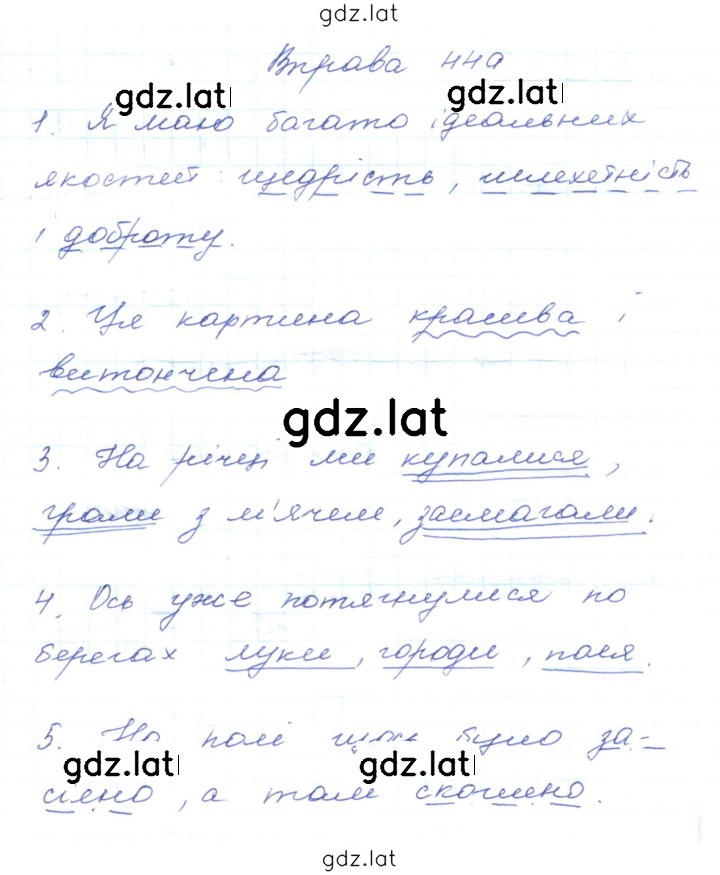 gdz.lat
Вправа 449
gdz.lat gdz.lat
1. Я маю багато ідеальних
якостей: щедрість, шлехетність
і доброту.
2. Ця картина красива і
витончена
gdz.lat
3. На річці ми купалися,
грали з м'ячем, засмагали.
4. Ось уже потягнулися по
берегах луки, городи, поля.
5. На полі було за-
gdz.lat gdz.lat
сіяно, а там скошено.
gdz.lat